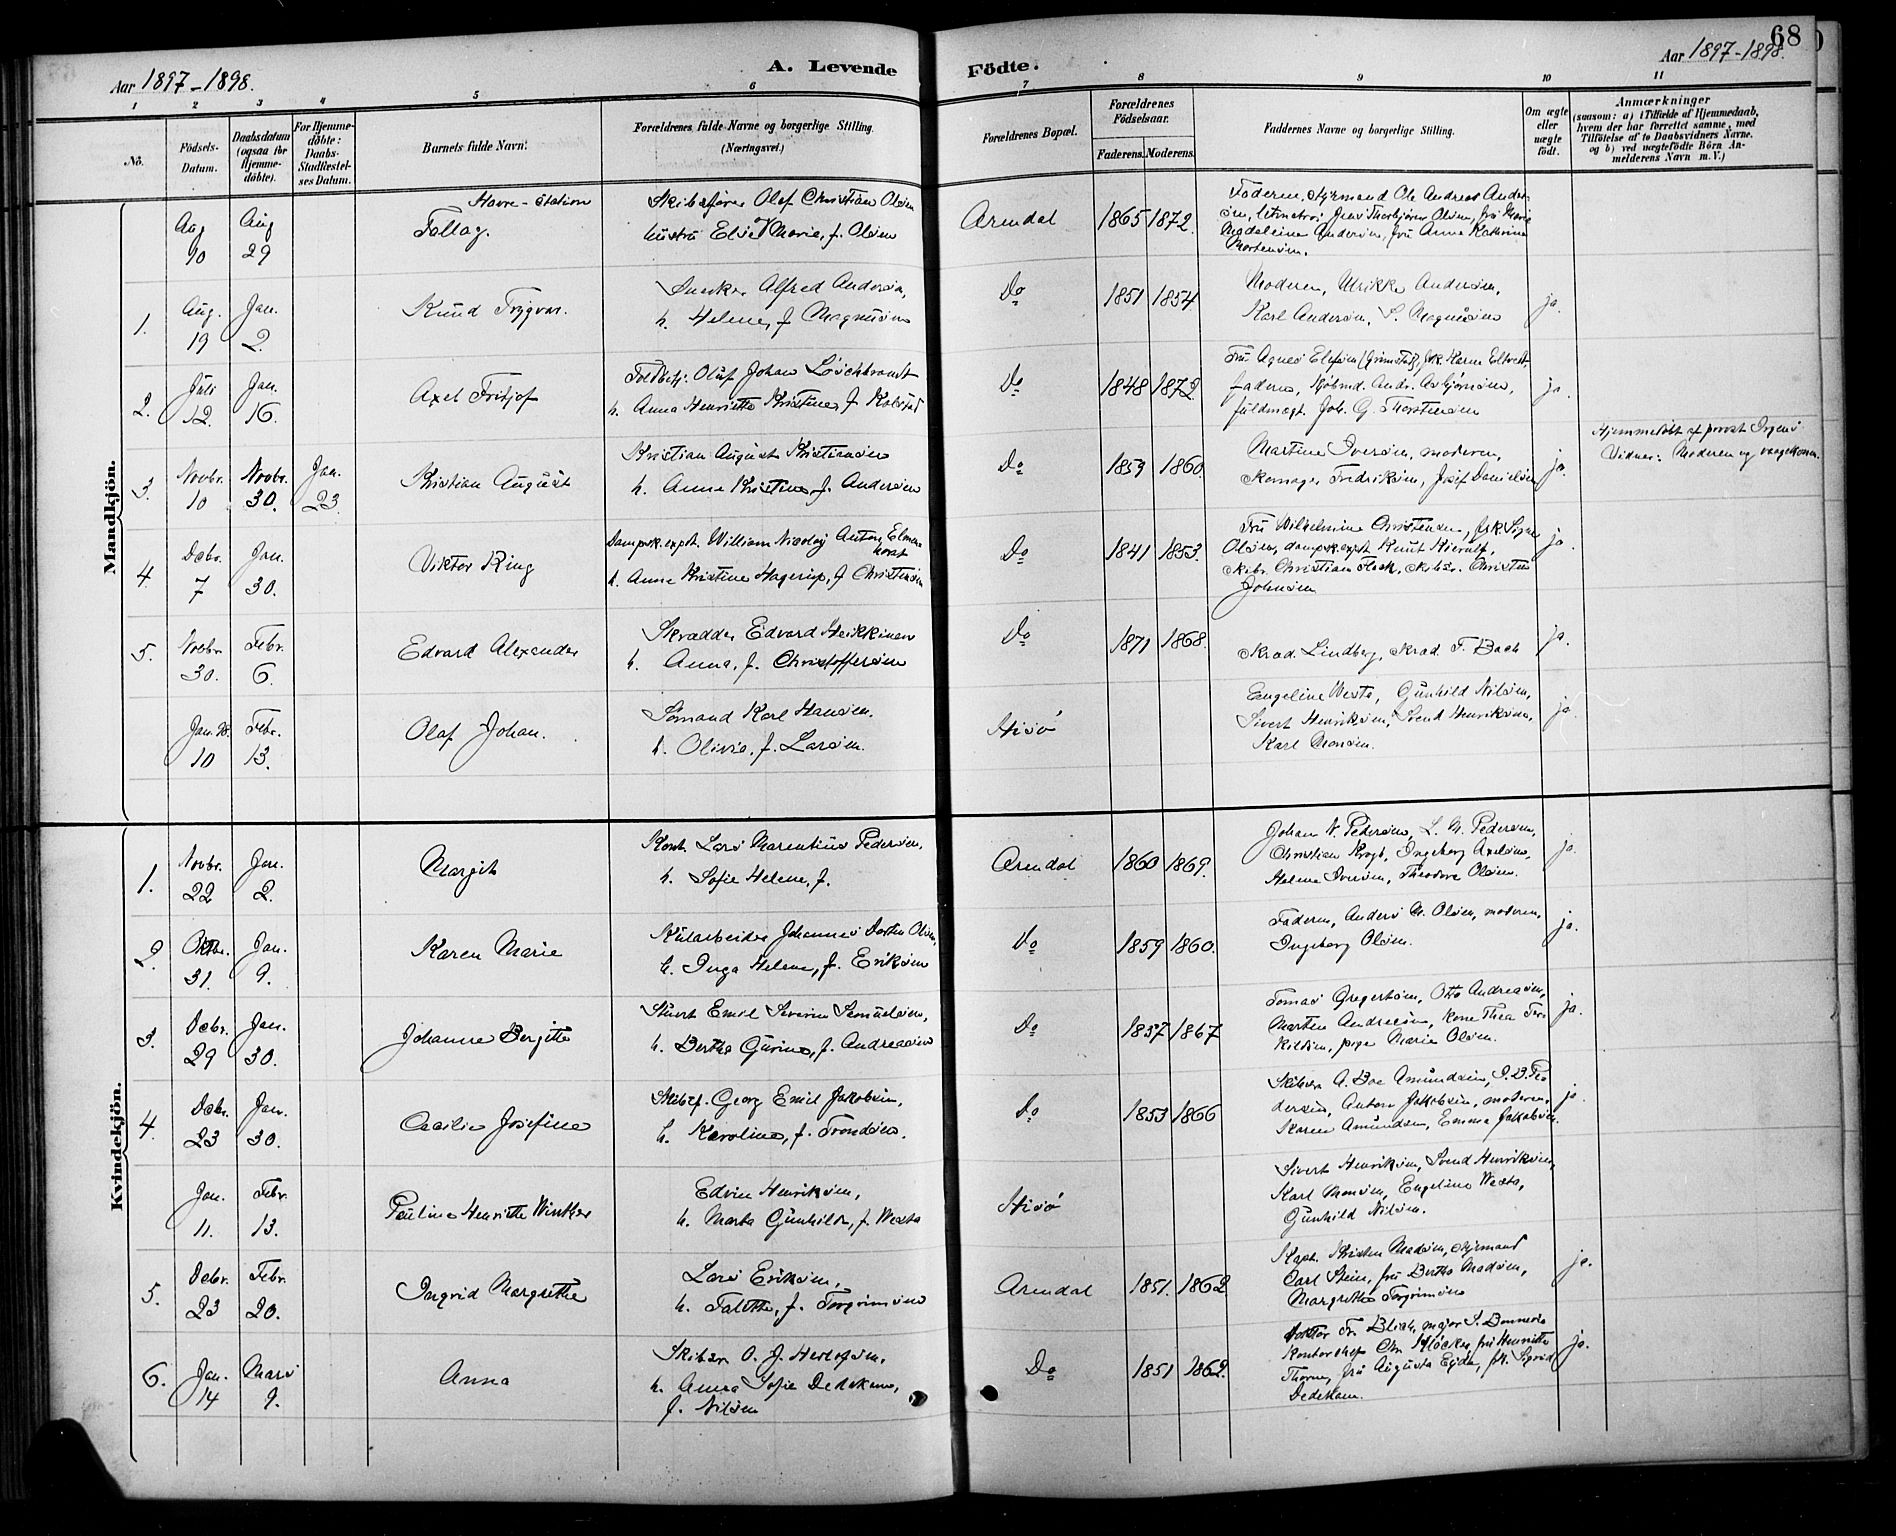 68
Aar 1897-1898.
A. Levende
Födte.
Aar 1897-1898.
1
2
3
4
5
6
7
8
9
10
11
No.
Födsels-
Datum.
Daabsdatum
(ogsaa for
Hjemme-
döbte).
For Hjemme-
döbte:
Daabs-
Stadfæstel-
ses Datum.
Barnets fulde Navn.
Forældrenes fulde Navne og borgerlige Stilling.
(Næringsvei.)
Forældrenes Bopæl.
Forældrenes
Födselsaar.
Faderens.
Moderens.
Faddernes Navne og borgerlige Stilling.
Om ægte
eller
uægte
født.
Anmærkninger
(saasom: a) i Tilfælde af Hjemmedaab,
hvem der har forrettet samme, med
Tilföielse af to Daabsvidners Navne.
og b) ved uægtefödte Börn An-
melderens Navn m. V.)
Mandkjön.
Havre-Station
Aug
10
Aug
29
Skibsfører Olaf Christian Olsen
hustru Elise Marie, f. Olsen
Arendal
1865
1872.
Faderen, styrmand Ole Andreas Ander-
sen, Jens Thorbjørn Olsen, fru Marie
Magdalene Andersen, fru Anna Kathrine
Mortensen.
1.
Aug.
19
Jan.
2.
Knud Trygvar.
Snedker Alfred Andersen,
h. Helene, f. Magnusen
Do
1851
1854.
Moderen, Ulrikke Andersen,
Karl Andersen, S. Magnusen
ja.
2.
Juli
12.
Jan.
16.
Axel Fritjof
Toldbetj. Oluf Johan Löschbrandt
h. Anna Henriette Kristine, f. Kolstad
Do
1848
1872.
Fru Agnes Elefsen (Grimstad), frk. Karen
faderen, kjøbmd. Andr. Asbjørnsen,
fuldmægt. Joh. G. Thorstensen
ja.
3.
Novbr.
10
Novbr.
30.
Jan.
23.
Kristian August
Kristian August Kristiansen
h. Anna Kristine, f. Andersen
Do
1859
1860.
Martine Iversen, moderen,
skomager Fredriksen, Josef Danielsen
ja.
Hjemmedøbt af provst
Vidner: Moderen og vaagekonen.
4.
Decbr.
7
Jan.
30.
Viktor Ring
Dampsk.expd. William Nicolay Anton
h. Anne Kristine Hagerup, f. Christensen
Do
1841
1853.
Fru Wilhelmine Christensen, frk. Signe
Olsen, dampsk.expd. Knut Kierulf,
skibr. Christian Fleck, skibsr. Christen
Johnsen
ja.
5.
Novbr.
30.
Febr.
6.
Edvard Alexander
Skrædder Edvard Heikkinen
h. Anna, f. Christoffersen
Do
1871
1868.
Skræd. Lindberg, skræd. F. Bach
ja.
Jan. 98.
10
Febr.
13.
Olaf Johan.
Sømand Karl Hansen.
h. Olivia, f. Larsen.
Hisø
Engeline Vesta, Gunhild Nilsen,
Sivert Henriksen, Svend Henriksen,
Karl Monsen.
ja.
Kvindekjön.
1.
Novbr.
22
Jan.
2.
Margit
Kont. Lars Marentius Pedersen,
h. Sofie Helene, f.
Arendal
1860
1869.
Johan N. Pedersen, L. M. Pedersen,
Christian Krogh, Ingeborg Axelsen,
Helene Iversen, Theodora Olsen.
ja.
2.
Oktbr.
31.
Jan.
9.
Karen Marie
Kularbeider Johannes Olsen,
h. Inga Helene, f. Eriksen
Do
1859
1860.
Faderen, Anders M. Olsen, moderen,
Ingeborg Olsen.
ja.
3.
Decbr.
29
Jan.
30.
Johanne Bergitte
Stuert Emil Severin Samuelsen,
h. Berthe Gurine, f. Andreassen
Do
1857
1867
Tomas Gregersen, Otto Andreasen,
Marten Andreasen, kone Thea Ter-
kildsen, pige Marie Olsen.
ja.
4.
Decbr.
23
Jan.
30.
Cecilie Josefine
Skibsf. Georg Emil Jakobsen,
h. Karoline, f. Trondsen.
Do
1853
1866
Skibsr. A. Boe Amundsen, P. B. Pe-
dersen, Anton Jakobsen, moderen,
Karen Amundsen, Emma Jakobsen.
ja.
Jan.
11.
Febr.
13.
Pauline Henriette Winther
Edvin Henriksen,
h. Marta Gunhild, f. Vesta
Hisø
Sivert Henriksen, Svend Henriksen,
Karl Monsen, Engeline Vesta,
Gunhild Nilsen.
5.
Decbr.
23
Febr.
20.
Ingrid Margrethe
Lars Eriksen,
h. Talette, f. Torgrimsen
Arendal
1851.
1862
Kapt. Kristen Madsen, styrmand
Carl Stein, fru Berthe Madsen,
Margrethe Torgrimsen
ja.
6.
Jan.
14
Mars
9.
Anna
Skibsr. O. J. Herlofsen,
h. Anna Sofie Dedekam,
f. Nilsen
Do
1851
1862.
Doktor Fr. Blich, major S. Bonnevie
kontorchef Chr. Kløcker, fru Henriette
Thorne, fru Augusta Eyde, frk. Sigrid
Dedekam.
ja.